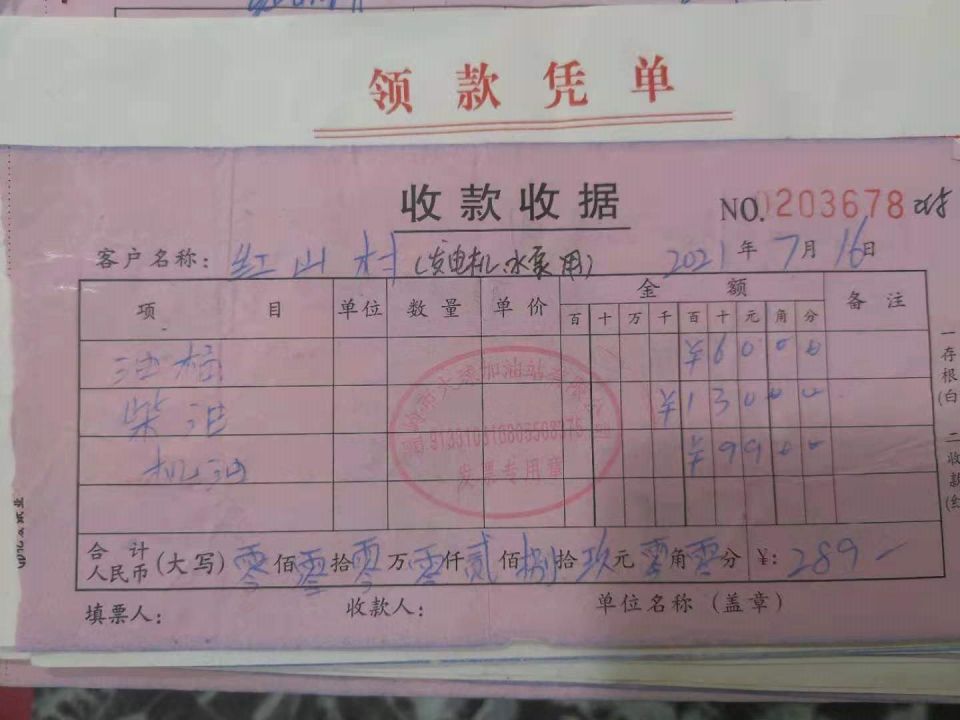 领款凭单
收款收据
NO.0203678
客户名称：红山村(发电机、水泵用) 2021年7月16日
项目 单位 数量 单价 金额 备注
百 十 万 千 百 十 元 角 分
油桶 ¥6000
柴油 ¥13000
机油 ¥9900
发票专用章
合计人民币(大写)零佰零拾零万零仟贰佰捌拾玖元零角零分 ¥：289-
填票人： 收款人： 单位名称(盖章)
一存根(白
二收款(红